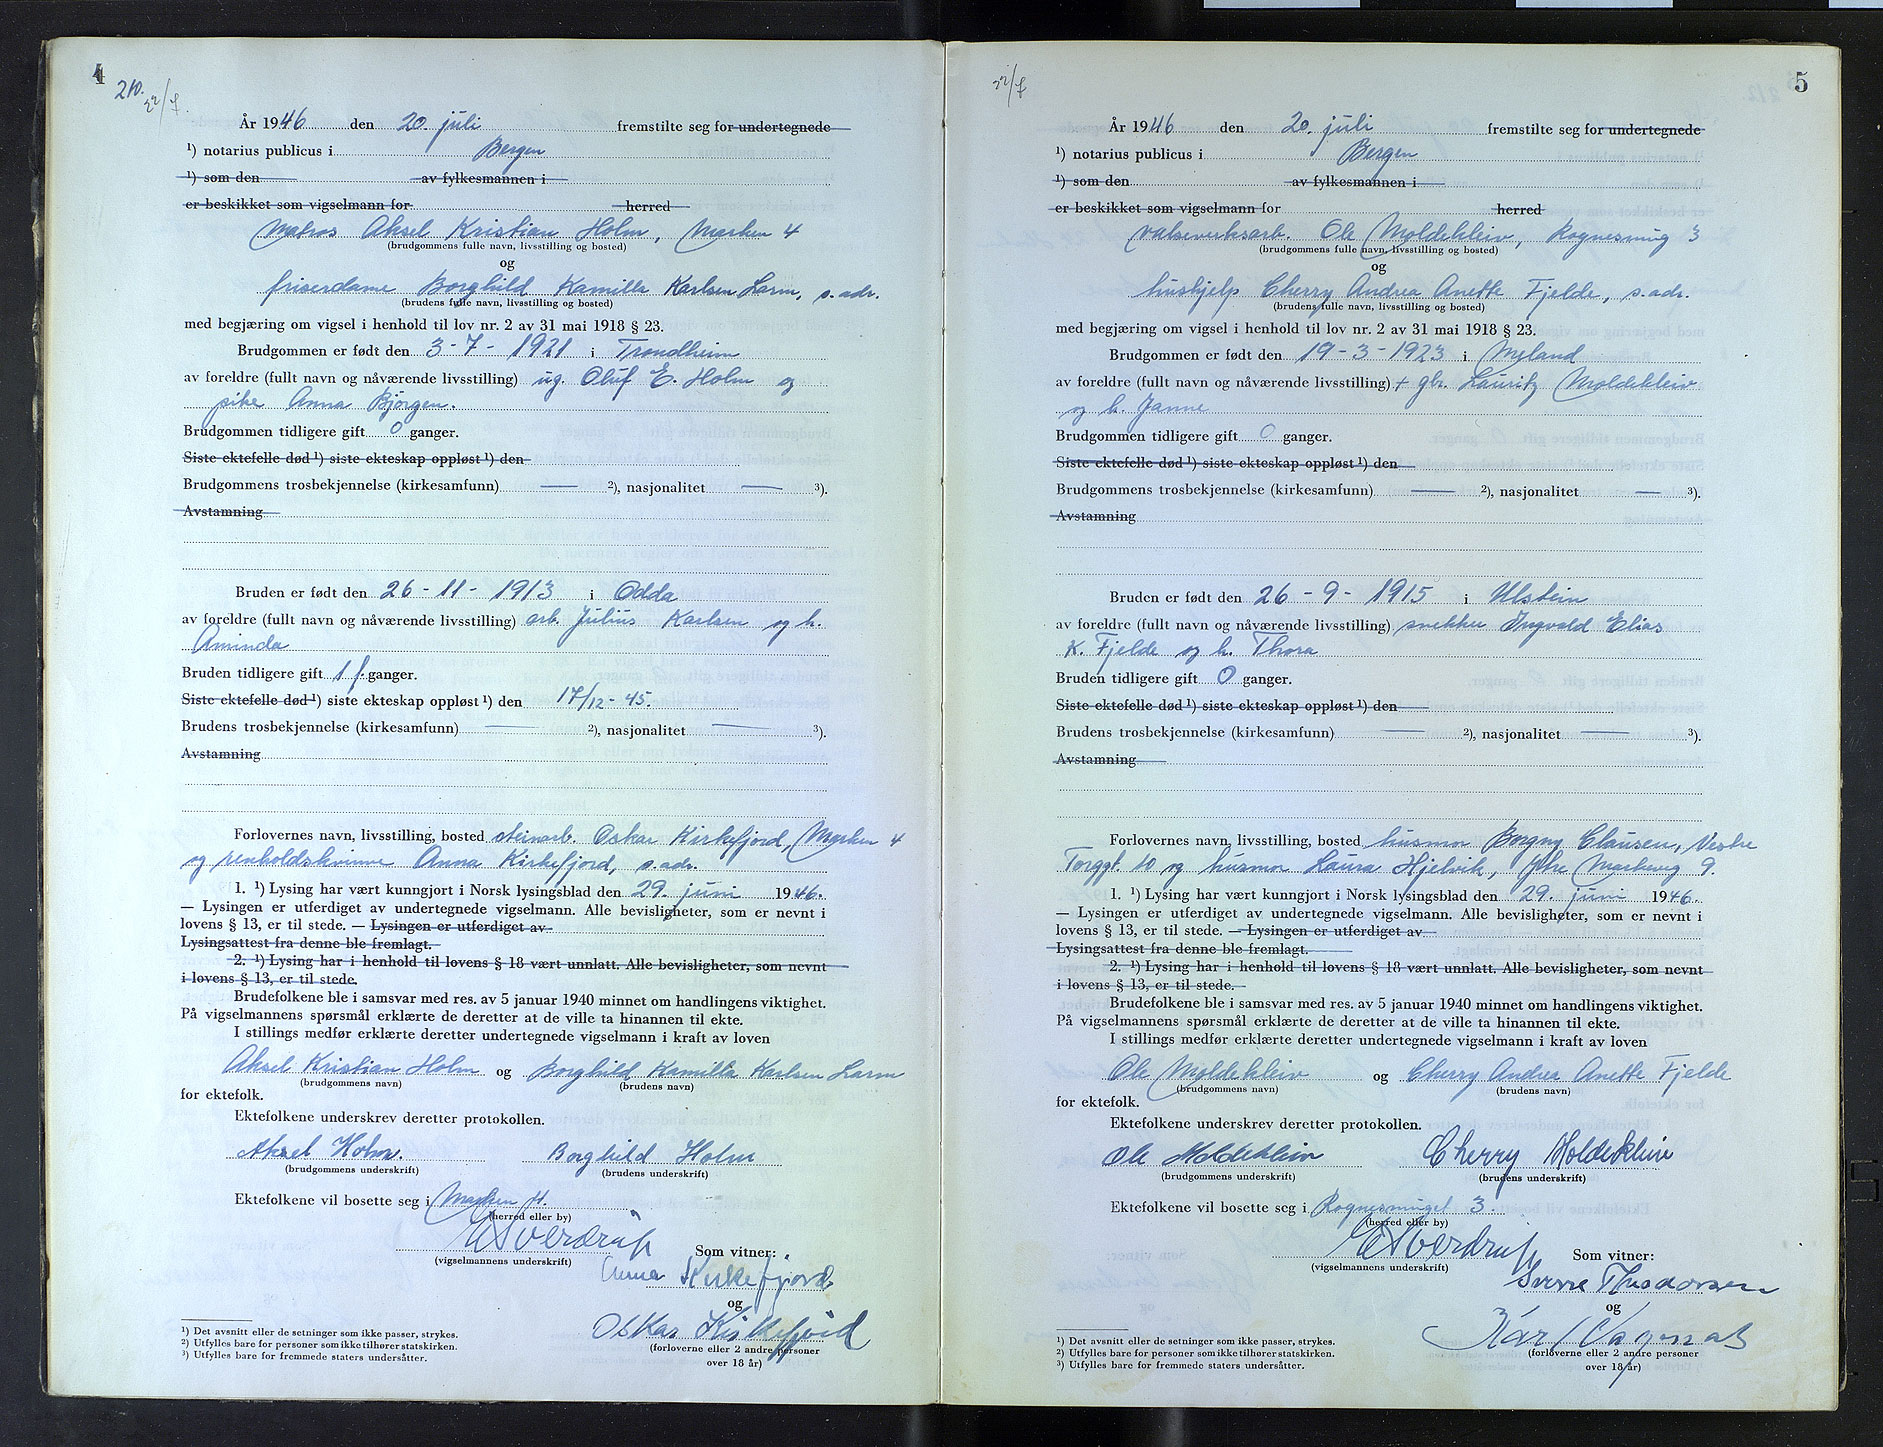 4
210.
22/7.
År 1946 den 20. juli fremstilte seg for undertegnede
¹) notarius publicus i Bergen
¹) som den av fylkesmannen i
er beskikket som vigselmann for herred
Matros Aksel Kristian Holm, Marken 4
(brudgommens fulle navn, livsstilling og bosted)
og
friserdame Borghild Kamilla Karlsen Larm, s. adr.
(brudens fulle navn, livsstilling og bosted)
med begjæring om vigsel i henhold til lov nr. 2 av 31 mai 1918 § 23.
Brudgommen er født den 3-7-1921 i Trondheim
av foreldre (fullt navn og nåværende livsstilling) ug. Oluf E. Holm og
pike Anna Bjørgen.
Brudgommen tidligere gift 0 ganger.
Siste ektefelle død ¹) siste ekteskap oppløst ¹) den
Brudgommens trosbekjennelse (kirkesamfunn) — ²), nasjonalitet — ³).
Avstamning
Bruden er født den 26-11-1913 i Odda
av foreldre (fullt navn og nåværende livsstilling) arb. Julius Karlsen og h.
Aminda
Bruden tidligere gift 1 f. ganger.
Siste ektefelle død ¹) siste ekteskap oppløst ¹) den 17/12-45.
Brudens trosbekjennelse (kirkesamfunn) — ²), nasjonalitet — ³).
Avstamning
Forlovernes navn, livsstilling, bosted steinarb. Oskar Kirkefjord, Marken 4
og renholdskvinne Anna Kirkefjord, s. adr.
1. ¹) Lysing har vært kunngjort i Norsk lysingsblad den 29. juni 1946.
— Lysingen er utferdiget av undertegnede vigselmann. Alle bevisligheter, som er nevnt i
lovens § 13, er til stede. — Lysingen er utferdiget av
Lysingsattest fra denne ble fremlagt.
2. ¹) Lysing har i henhold til lovens § 18 vært unnlatt. Alle bevisligheter, som nevnt
i lovens § 13, er til stede.
Brudefolkene ble i samsvar med res. av 5 januar 1940 minnet om handlingens viktighet.
På vigselmannens spørsmål erklærte de deretter at de ville ta hinannen til ekte.
I stillings medfør erklærte deretter undertegnede vigselmann i kraft av loven
Aksel Kristian Holm og Borghild Kamilla Karlsen Larm
(brudgommens navn) (brudens navn)
for ektefolk.
Ektefolkene underskrev deretter protokollen.
Aksel Holm. Borghild Holm
(brudgommens underskrift) (brudens underskrift)
Ektefolkene vil bosette seg i Marken 4.
(herred eller by)
ESverdrup
(vigselmannens underskrift)
Som vitner:
Anna Kirkefjord
og
Oskar Kirkefjord
(forloverne eller 2 andre personer
over 18 år)
¹) Det avsnitt eller de setninger som ikke passer, strykes.
²) Utfylles bare for personer som ikke tilhører statskirken.
³) Utfylles bare for fremmede staters undersåtter.
22/7
5
År 1946 den 20. juli fremstilte seg for undertegnede
¹) notarius publicus i Bergen
¹) som den av fylkesmannen i
er beskikket som vigselmann for herred
valseverksarb. Ole Moldekleiv, Rognesmug 3
(brudgommens fulle navn, livsstilling og bosted)
og
hushjelp Cherry Andrea Anette Fjelde, s. adr.
(brudens fulle navn, livsstilling og bosted)
med begjæring om vigsel i henhold til lov nr. 2 av 31 mai 1918 § 23.
Brudgommen er født den 19-3-1923 i Myland
av foreldre (fullt navn og nåværende livsstilling) + gbr. Lauritz Moldekleiv
og h. Janne
Brudgommen tidligere gift 0 ganger.
Siste ektefelle død ¹) siste ekteskap oppløst ¹) den
Brudgommens trosbekjennelse (kirkesamfunn) — ²), nasjonalitet — ³).
Avstamning
Bruden er født den 26-9-1915 i Ulstein
av foreldre (fullt navn og nåværende livsstilling) snekker Ingvald Elias
K. Fjelde og h. Thora
Bruden tidligere gift 0 ganger.
Siste ektefelle død ¹) siste ekteskap oppløst ¹) den
Brudens trosbekjennelse (kirkesamfunn) — ²), nasjonalitet — ³).
Avstamning
Forlovernes navn, livsstilling, bosted husmor Borgny Clausen, Vestre
Torggt. 10 og husmor Laura Hjelvik, Ytre Markevug 9.
1. ¹) Lysing har vært kunngjort i Norsk lysingsblad den 29. juni 1946.
— Lysingen er utferdiget av undertegnede vigselmann. Alle bevisligheter, som er nevnt i
lovens § 13, er til stede. — Lysingen er utferdiget av
Lysingsattest fra denne ble fremlagt.
2. ¹) Lysing har i henhold til lovens § 18 vært unnlatt. Alle bevisligheter, som nevnt
i lovens § 13, er til stede.
Brudefolkene ble i samsvar med res. av 5 januar 1940 minnet om handlingens viktighet.
På vigselmannens spørsmål erklærte de deretter at de ville ta hinannen til ekte.
I stillings medfør erklærte deretter undertegnede vigselmann i kraft av loven
Ole Moldekleiv og Cherry Andrea Anette Fjelde
(brudgommens navn) (brudens navn)
for ektefolk.
Ektefolkene underskrev deretter protokollen.
Ole Moldekleiv Cherry Moldekleiv
(brudgommens underskrift) (brudens underskrift)
Ektefolkene vil bosette seg i Rognesmuget 3.
(herred eller by)
ESverdrup
(vigselmannens underskrift)
Som vitner:
Sverre Theodorsen
og
(forloverne eller 2 andre personer
over 18 år)
¹) Det avsnitt eller de setninger som ikke passer, strykes.
²) Utfylles bare for personer som ikke tilhører statskirken.
³) Utfylles bare for fremmede staters undersåtter.